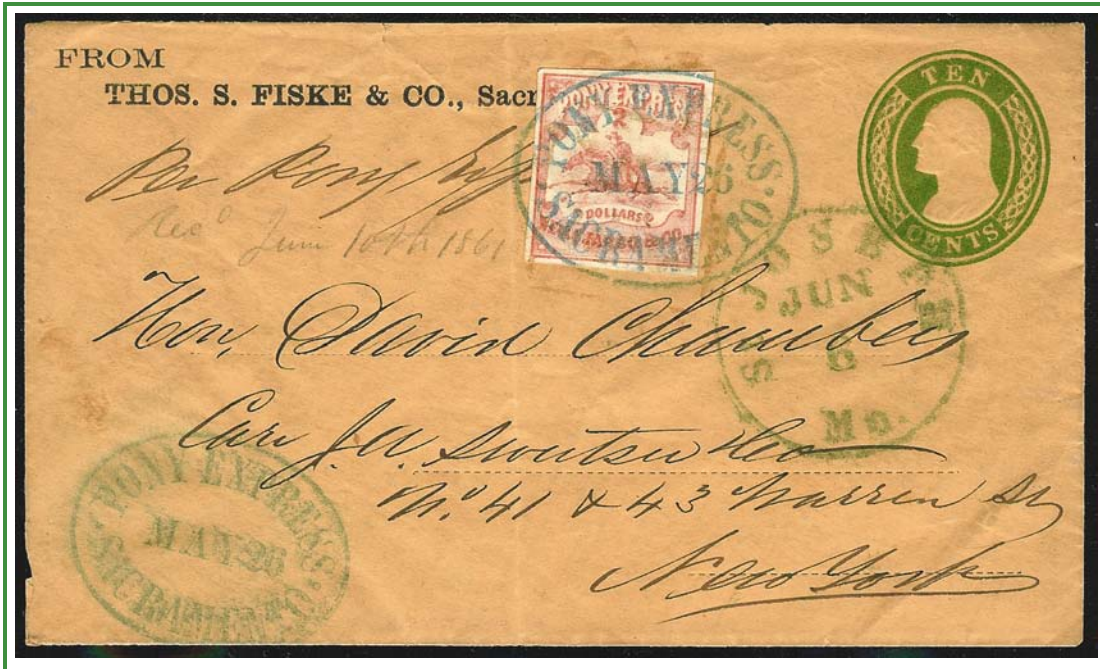 FROM
THOS. S. FISKE & CO., Sacr
Per Pony Exp
PONY EXPRESS
2
DOLLARS 2
WELLS, FARGO & CO
PONY EXPRESS.
MAY 26
SACRAMENTO
TEN
CENTS
Rec'd June 10th 1861
ST JOSEPH
JUN
6
Mo.
Hon. David Chambers
Care J. A. Sweetser & Co
No. 41 & 43 Warren St
New York
PONY EXPRESS.
MAY 26
SACRAMENTO